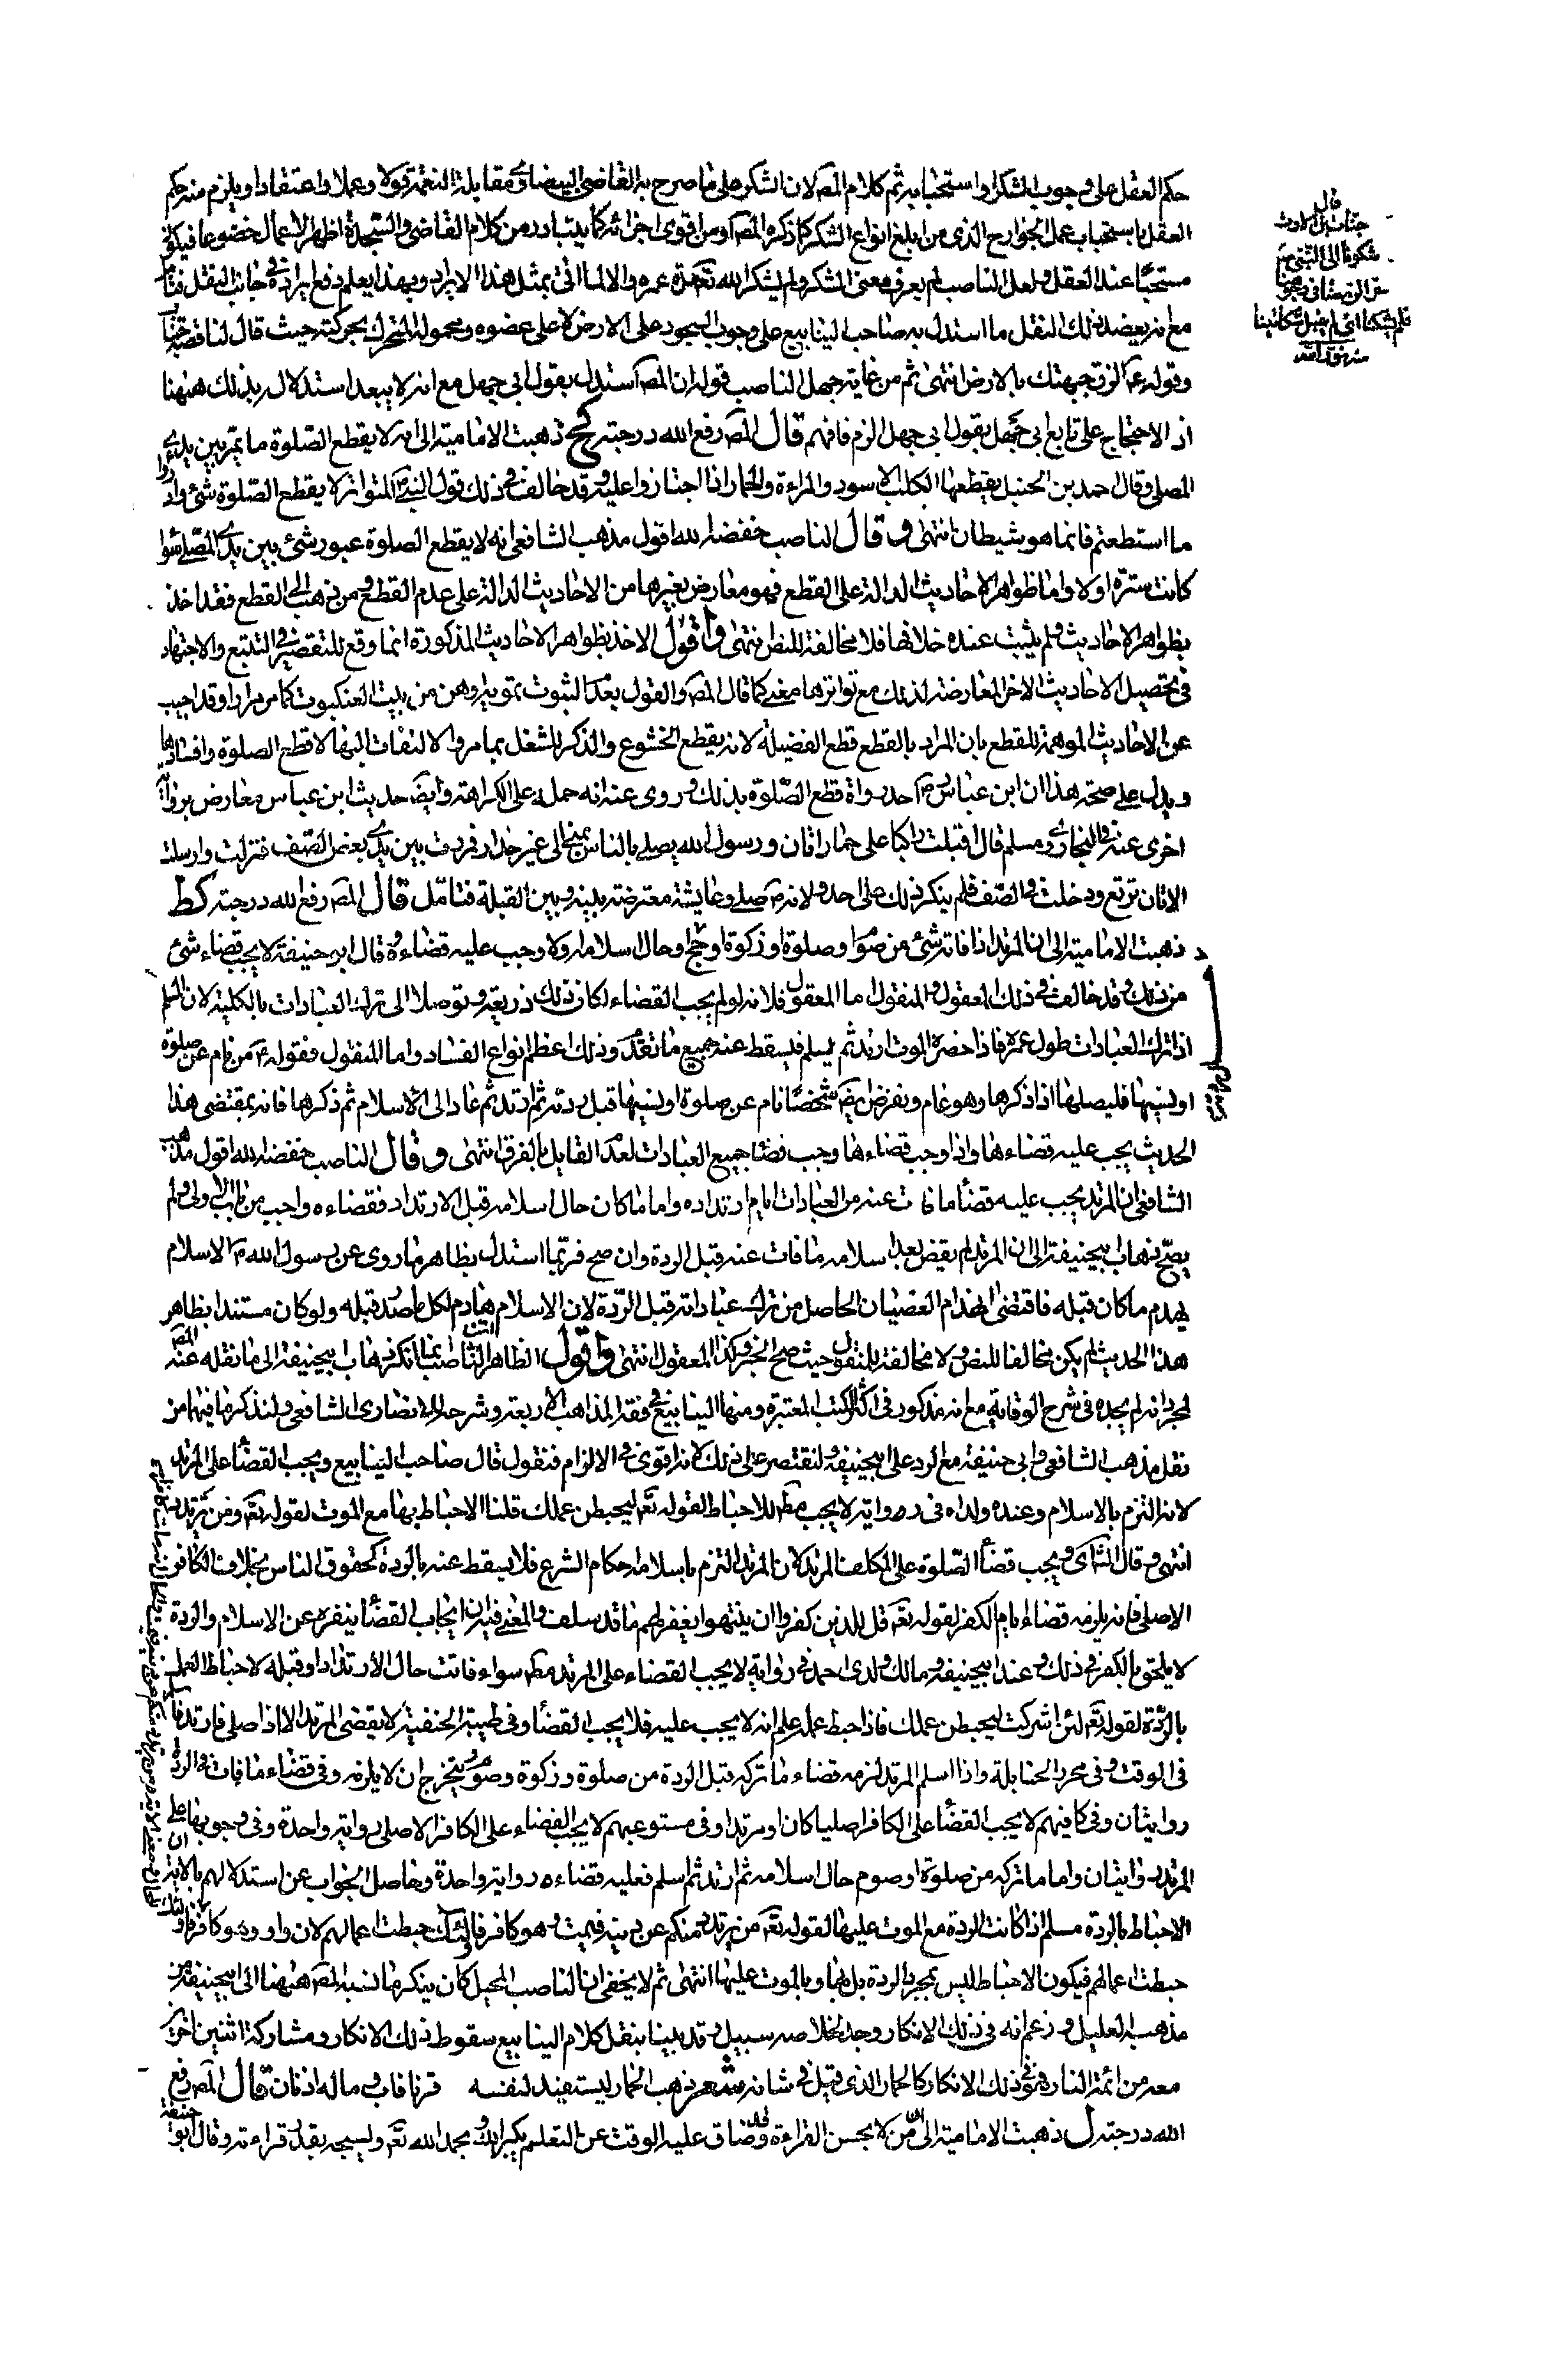 حكم العقل على وجوب الشكر او استحبابه ثم كلام المص لان الشكر على ما صرح به القاضي البيضاوي مقابلة النعمة قولا وعملا واعتقادا ويلزم منه حكم
العقل باستحباب عمل الجوارح الذي من ابلغ انواع الشكر كما ذكره المص او من اقوى اجزائه كما يتبادر من كلام القاضي والسجدة اظهر الاعمال خضوعا فيكون
مستحبا عند العقل ولعل الناصب لم يعرف معنى الشكر ولم يشكر الله تعالى مدة عمره والا لما اتى بمثل هذا الايراد وبهذا يعلم دفع ايراده في جانب النقل فتامل
مع انه يعضد ذلك النقل ما استدل به صاحب الينابيع على وجوب السجود على الارض لا على عضوه ومحموله المتحرك بحركته حيث قال لنا قصة خباب
وقوله ع م الزق جبهتك بالارض انتهى ثم من غاية جهل الناصب قوله ان المص استدل بقول ابي جهل مع انه لا يبعد استدلاله بذلك ههنا
اذ الاحتجاج على تابع ابي جهل بقول ابي جهل الزم فافهم قال المص رفع الله درجته كح ذهبت الامامية الى انه لا يقطع الصلوة ما يمر بين يدي
المصلي وقال احمد بن الحنبل يقطعها الكلب الاسود والمراءة والحمار اذا اجتازوا عليه وقد خالف في ذلك قول النبي المتواتر لا يقطع الصلوة شئ وادرؤا
ما استطعتم فانما هو شيطان انتهى وقال الناصب خفضه الله اقول مذهب الشافعي انه لا يقطع الصلوة عبور شئ بين يدي المصلي سواء
كانت سترة او لا واما ظواهر الاحاديث الدالة على القطع فهو معارض بغيرها من الاحاديث الدالة على عدم القطع ومن ذهب الى القطع فقد اخذ
بظواهر الاحاديث ولم يثبت عنده خلافها فلا مخالفة للنص انتهى واقول الاخذ بظواهر الاحاديث المذكورة انما وقع للتقصير في التتبع والاجتهاد
في تحصيل الاحاديث الاخر المعارضة لذلك مع تواترها معنى كما قال المص والقول بعدم الثبوت تمويه اوهن من بيت العنكبوت كما مر مرارا وقد اجيب
عن الاحاديث الموهمة للقطع بان المراد بالقطع قطع الفضيلة لانه يقطع الخشوع والذكر للشغل بها مر والالتفات اليها لا قطع الصلوة وافسادها
ويدل على صحة هذا ان ابن عباس احد رواة قطع الصلوة بذلك وروى عنه انه حمله على الكراهة وايضا حديث ابن عباس معارض برواية
اخرى عنه في البخاري ومسلم قال اقبلت راكبا على حمار اتان ورسول الله يصلي بالناس بمنى الى غير جدار فمررت بين يدي بعض الصف فنزلت وارسلت
الاتان ترتع ودخلت في الصف فلم ينكر ذلك على احد ولانه صلى وعايشة معترضة بينه وبين القبلة فتامل قال المص رفع الله درجته كط
ذهبت الامامية الى ان المرتد اذا فاته شئ من صوم او صلوة او زكوة او حج او حال اسلامه ولا وجب عليه قضاءه وقال ابو حنيفة لا يجب قضاء شئ
من ذلك وقد خالف في ذلك المعقول والمنقول اما المعقول فلانه لو لم يجب القضاء لكان ذلك ذريعة وتوصلا الى ترك العبادات بالكلية لان المسلم
اذا ترك العبادات طول عمره فاذا حضره الموت ارتد ثم يسلم فيسقط عنه جميع ما تقدم وذلك اعظم انواع الفساد واما المنقول فقوله من نام عن صلوة
او نسيها فليصلها اذا ذكرها وهو عام ونفرض ايضا شخصا نام عن صلوة او نسيها قبل ردته ثم ارتد ثم عاد الى الاسلام ثم ذكرها فانه بمقتضى هذا
الحديث يجب عليه قضاءها واذا وجب قضاءها وجب قضاء جميع العبادات لعدم القايل بالفرق انتهى وقال الناصب خفضه الله اقول مذهب
الشافعي ان المرتد يجب عليه قضاء ما فات عنه من العبادات ايام ارتداده واما ما كان حال اسلامه قبل الارتداد فقضاءه واجب من باب الاولى ولم
يصح ذهاب ابي حنيفة الى ان المرتد لم يقض بعد اسلامه ما فات عنه قبل الردة وان صح فربما استدل بظاهر ما روى عن رسول الله الاسلام
يهدم ما كان قبله فاقتضى انهدام العصيان الحاصل من ترك عباداته قبل الردة لان الاسلام هادم لكل ما صدر قبله ولو كان مستندا بظاهر
هذا الحديث لم يكن مخالفا للنص ولا مخالفة للمنقول حيث صح الخبر وكذا المعقول انتهى واقول الظاهر ان الناصب انما انكر ذهاب ابي حنيفة الى ما نقله عنه المص
لمجرد انه لم يجده في شرح الوقاية مع انه مذكور في اكثر الكتب المعتبرة ومنها الينابيع في فقه المذاهب الاربعة وشرحه للانصاري الشافعي ولنذكر ما فيهما من
نقل مذهب الشافعي وابي حنيفة مع الرد على ابي حنيفة ولنقتصر على ذلك لانه اقوى في الالزام فنقول قال صاحب الينابيع ويجب القضاء على المرتد
لانه التزم بالاسلام وعنده ولداه في رواية لا يجب مط للاحباط لقوله تعالى ليحبطن عملك قلنا الاحباط بها مع الموت لقوله تعالى ومن يرتدد
انتهى وقال الشارح ويجب قضاء الصلوة على المكلف المرتد لان المرتد التزم باسلامه احكام الشرع فلا يسقط عنه بالردة كحقوق الناس بخلاف الكافر
الاصلي فانه يلزمه قضاء ايام الكفر لقوله تعالى قل للذين كفروا ان ينتهوا يغفر لهم ما قد سلف والمعنى فيه ان ايجاب القضاء ينفره عن الاسلام والردة
لا يلحق بالكفر في ذلك وعند ابي حنيفة ومالك ولدى احمد في رواية لا يجب القضاء على المرتد مط سواء فاتت حال الارتداد او قبله لاحباط العمل
بالردة لقوله تعالى لئن اشركت ليحبطن عملك فاذا حبط عمله علم انه لا يجب عليه فلا يجب القضاء وفي طيبة الحنفية لا يقضى المرتد الا اذا صلى فارتد فاسلم
في الوقت وفي محرر الحنابلة واذا اسلم المرتد لزمه قضاء ما تركه قبل الردة من صلوة وزكوة وصوم ويتخرج ان لا يلزمه وفي قضاء ما فات في الردة
روايتان وفي كافيهم لا يجب القضاء على الكافر اصليا كان او مرتدا وفي مستوعبهم لا يجب القضاء على الكافر الاصلي رواية واحدة وفي وجوبها على
المرتد روايتان واما ما تركه من صلوة او صوم حال اسلامه ثم ارتد ثم اسلم فعليه قضاءه رواية واحدة وحاصل الجواب عن استدلالهم بالاية ان
الاحباط بالردة مسلم اذا كانت الردة مع الموت عليها لقوله تعالى من يرتدد منكم عن دينه فيمت وهو كافر فاولئك حبطت اعمالهم لان واو وهو كافر فاولئك
حبطت اعمالهم فيكون الاحباط ليس بمجرد الردة بل بها وبالموت عليها انتهى ثم لا يخفى ان الناصب المحيل كان ينكر ما نسبه المص ههنا الى ابي حنيفة من
مذهبه العليل وزعم انه في ذلك الانكار وجد لخلاصه سبيل وقد بينا بنقل كلام الينابيع سقوط ذلك الانكار ومشاركة اثنين اخر
معه من ائمة النار فهو في ذلك الانكار كالحمار الذي قيل في شانه شعر ذهب الحمار ليستفيد لنفسه قرنا فاب وماله اذنان قال المص رفع
الله درجته ل ذهبت الامامية الى ان من لا يحسن القراءة وضاق عليه الوقت عن التعلم يكبر الله ويحمد الله تعالى ويسبحه بقدر قراءته وقال ابو حنيفة
قال
شكونا الى النبي